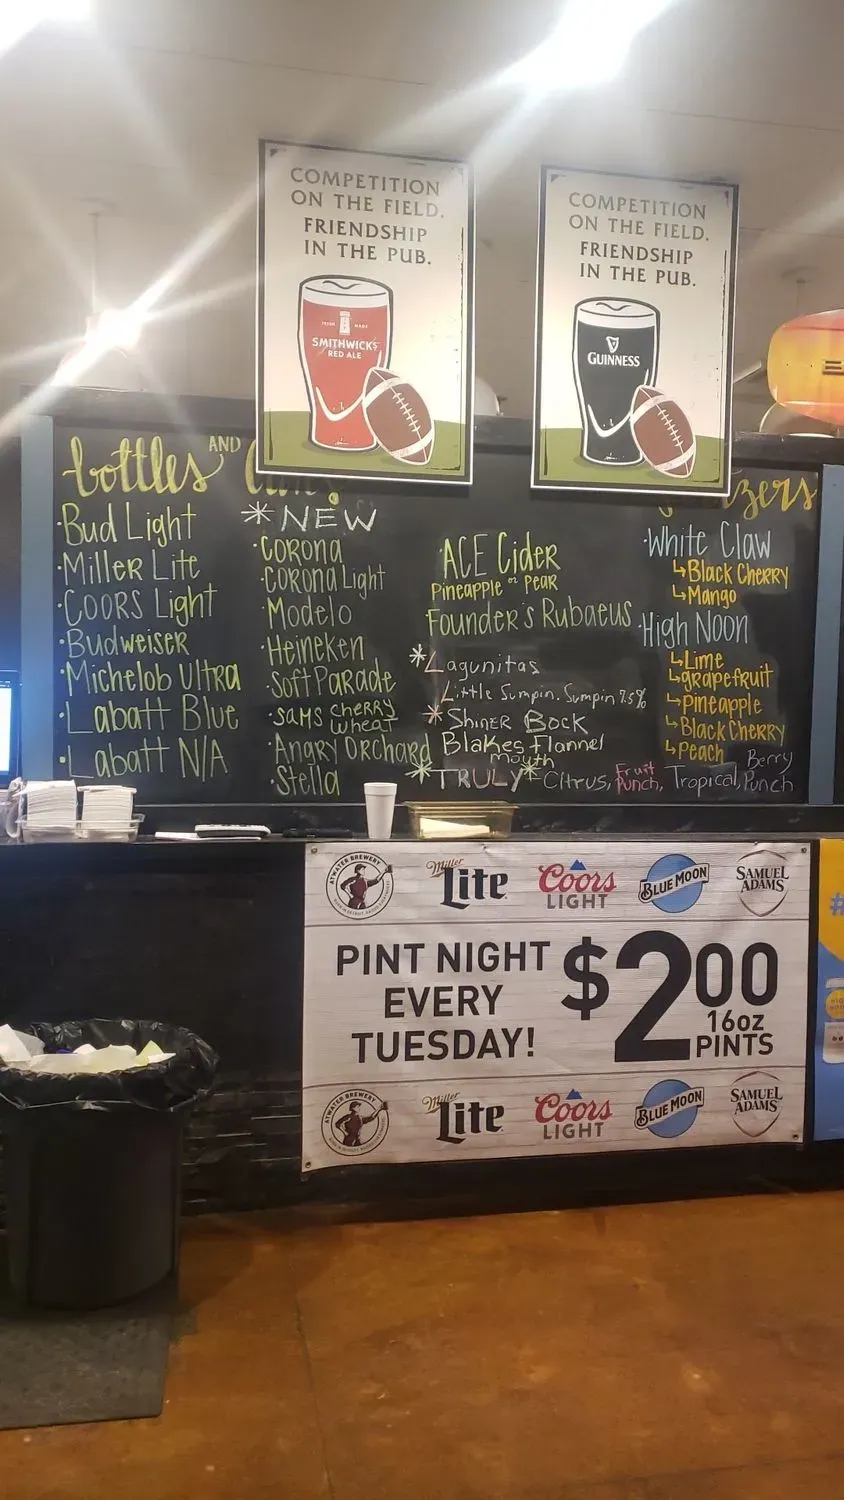 COMPETITION
ON THE FIELD.
FRIENDSHIP
IN THE PUB.
FRESH MADE
SMITHWICK'S
RED ALE
COMPETITION
ON THE FIELD.
FRIENDSHIP
IN THE PUB.
GUINNESS
bottles AND
·Bud Light
·Miller Lite
·COORS Light
·Budweiser
·Michelob Ultra
·Labatt Blue
·Labatt N/A
*NEW
·Corona
·Corona Light
·Modelo
·Heineken
·Soft Parade
·SAMS CHERRY
WHEAT
·Angry Orchard
·Stella
·ACE Cider
Pineapple or Pear
Founder's Rubaeus
*Lagunitas
Little Sumpin. Sumpin 7.5%
*SHINER BOCK
Blakes Flannel
mouth
*TRULY* Citrus, Fruit Punch, Tropical, Berry Punch
·White Claw
↳Black Cherry
↳Mango
·High Noon
↳Lime
↳grapefruit
↳Pineapple
↳Black Cherry
↳Peach
ATWATER BREWERY
Miller Lite
Coors LIGHT
BLUE MOON
SAMUEL ADAMS
PINT NIGHT
EVERY
TUESDAY!
$200
16oz
PINTS
ATWATER BREWERY
Miller Lite
Coors LIGHT
BLUE MOON
SAMUEL ADAMS
#